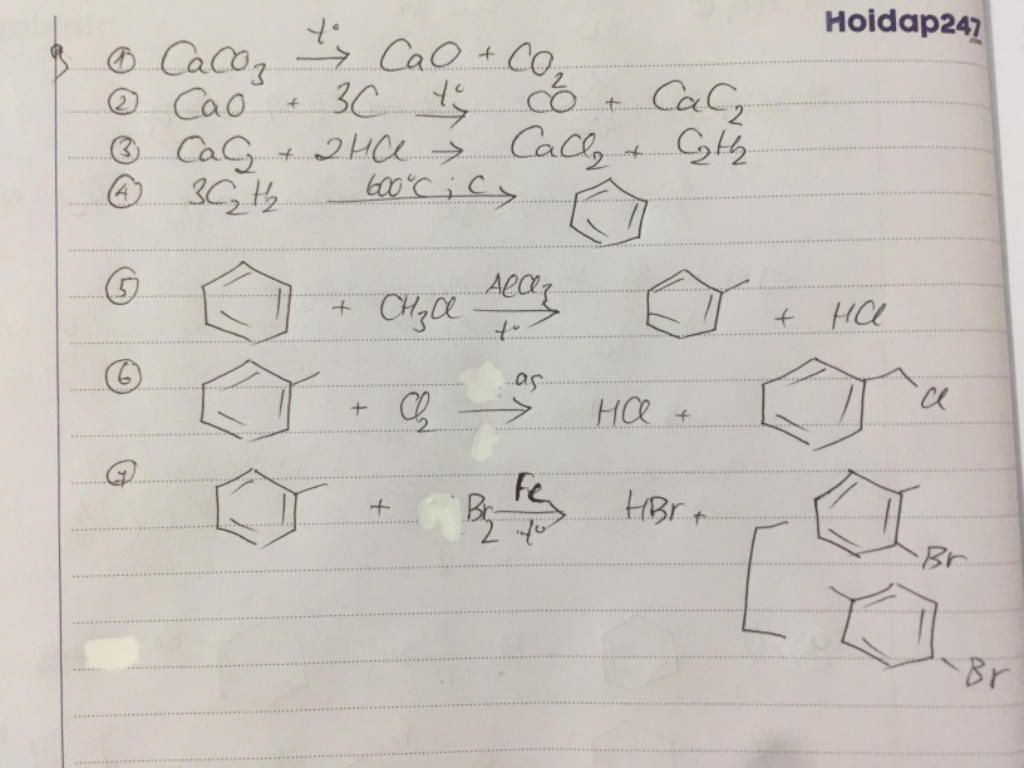 Hoidap247
.com
B
① CaCO3 t° → CaO + CO2
② CaO + 3C t° → CO + CaC2
③ CaC2 + 2HCl → CaCl2 + C2H2
④ 3C2H2 600°C; C →
⑤ + CH3Cl AlCl3 t° → + HCl
⑥ + Cl2 as → HCl + Cl
⑦ + Br2 Fe t° → HBr +
Br
Br